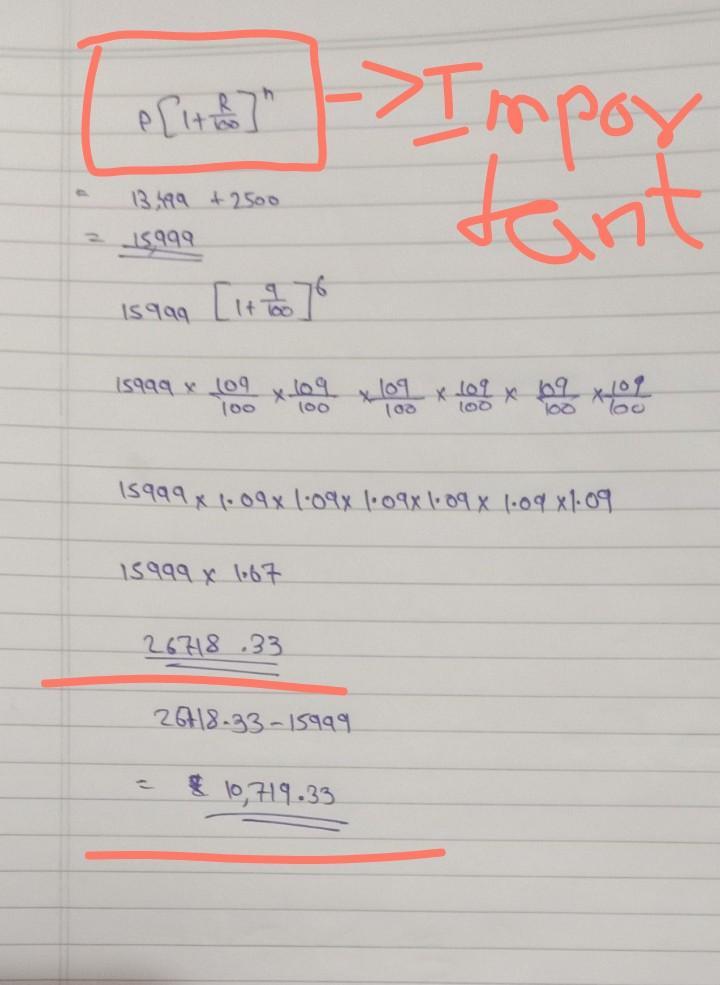 P[1+R/100]^n -> Impor
tant
= 13,499 + 2500
= 15,999
15999 [1+9/100]^6
15999 × 109/100 × 109/100 × 109/100 × 109/100 × 109/100 × 109/100
15999 × 1.09 × 1.09 × 1.09 × 1.09 × 1.09 × 1.09
15999 × 1.67
26718.33
26718.33 - 15999
= 10,719.33